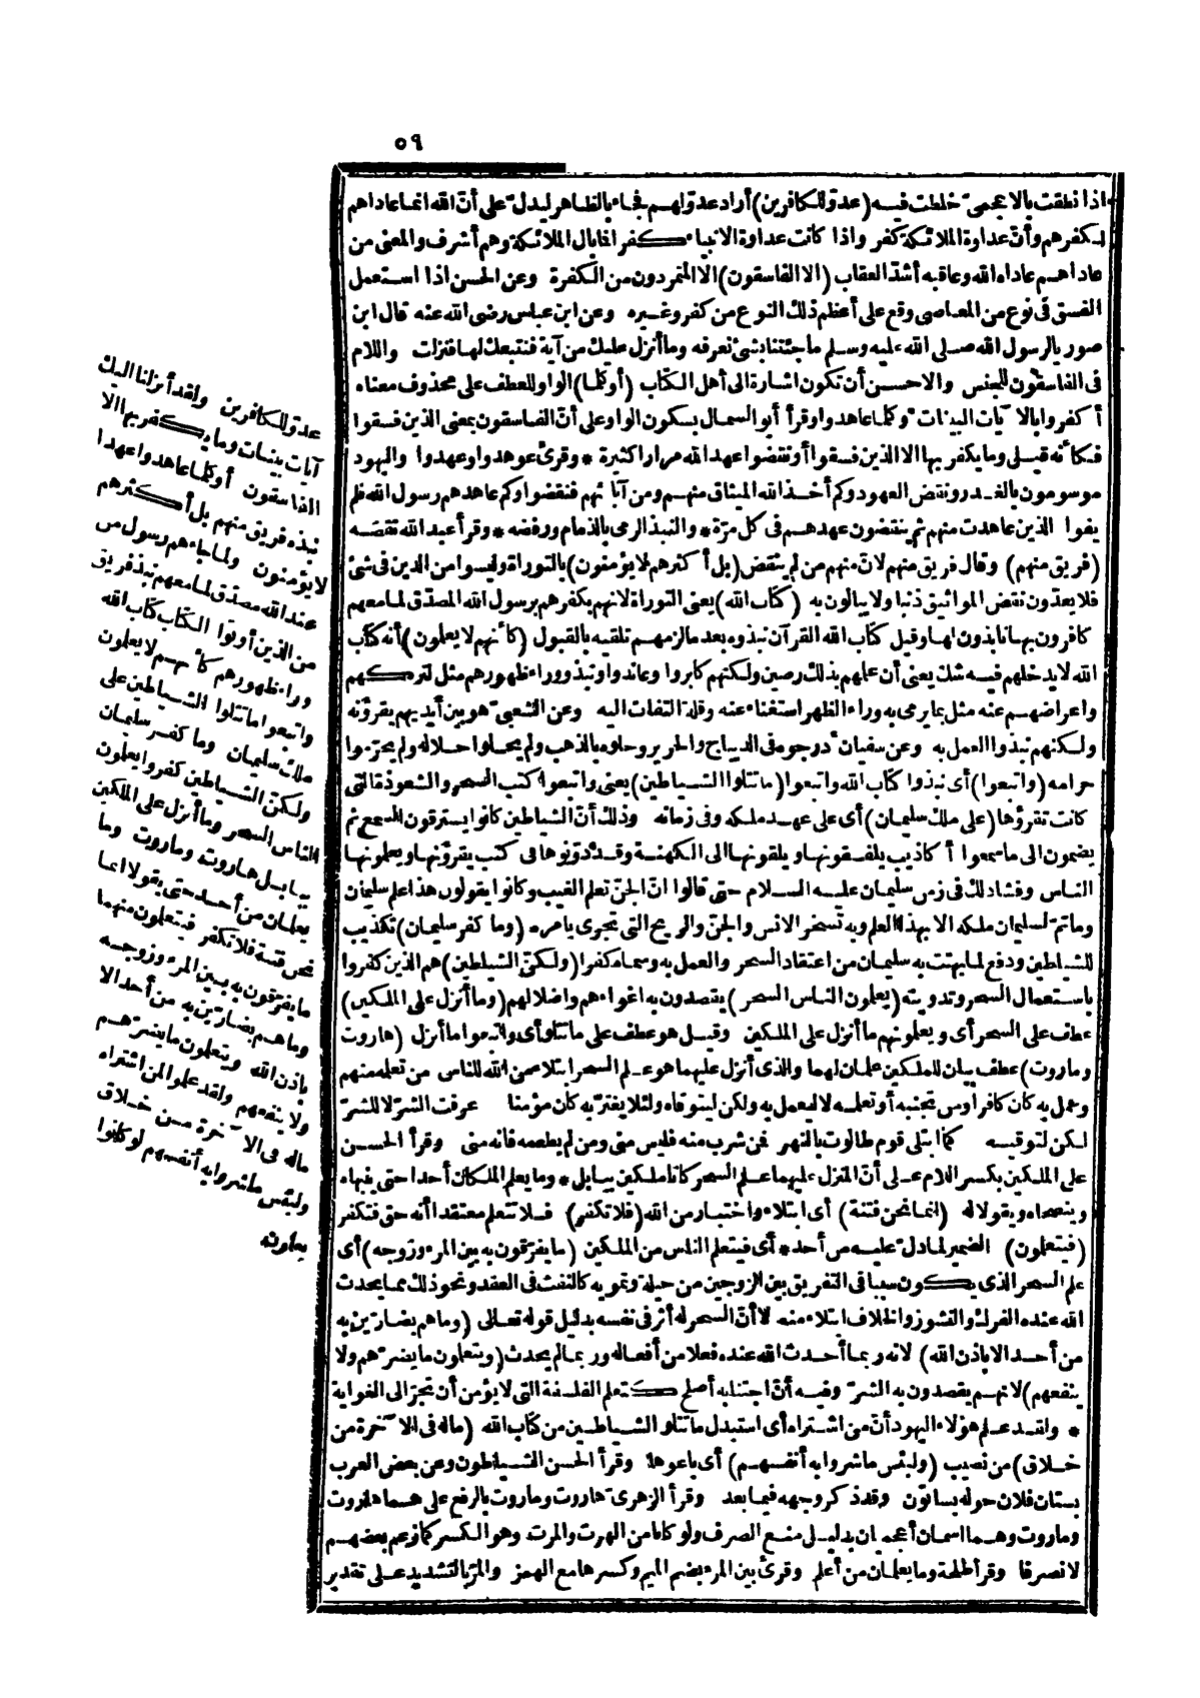 ٥٩
اذا نطقت بالاعجمىّ خلطت فيه (عدوّ للكافرين) أراد عدوّ لهم فجاء بالظاهر ليدلّ على أنّ الله انما عاداهم
لكفرهم وأنّ عداوة الملائكة كفر واذا كانت عداوة الانبياء كفرا فما بال الملائكة وهم أشرف والمعنى من
عاداهم عاداه الله وعاقبه أشدّ العقاب (الا الفاسقون) الا المتمردون من الكفرة وعن الحسن اذا استعمل
الفسق فى نوع من المعاصى وقع على أعظم ذلك النوع من كفر وغيره وعن ابن عباس رضى الله عنه قال ابن
صوريا لرسول الله صلى الله عليه وسلم ما جئتنا بشئ نعرفه وما أنزل عليك من آية فنتبعك لها فنزلت واللام
فى الفاسقون للجنس والاحسن أن تكون اشارة الى أهل الكتاب (أوكلما) الواو للعطف على محذوف معناه
أكفروا بالآيات البينات وكلما عاهدوا وقرأ أبو السمال بسكون الواو على أنّ الفاسقون بمعنى الذين فسقوا
فكأنه قيل وما يكفر بها الا الذين فسقوا أو نقضوا عهد الله مرارا كثيرة * وقرئ عوهدوا وعهدوا واليهود
موسومون بالغدر ونقض العهود وكم أخذ الله الميثاق منهم ومن آبائهم فنقضوا وكم عاهدهم رسول الله فلم
يفوا الذين عاهدت منهم ثم ينقضون عهدهم فى كل مرّة * والنبذ الرمى بالذمام ورفضه * وقرأ عبد الله نقضه
(فريق منهم) وقال فريق منهم لانّ منهم من لم ينقض (بل أكثرهم لا يؤمنون) بالتوراة وليسوا من الدين فى شئ
فلا يعدّون نقض المواثيق ذنبا ولا يبالون به (كتاب الله) يعنى التوراة لانهم بكفرهم برسول الله المصدّق لما معهم
كافرون بها نابذون لها وقيل كتاب الله القرآن نبذوه بعد ما لزمهم تلقيه بالقبول (كأنهم لا يعلمون) أنه كتاب
الله لا يدخلهم فيه شك يعنى أن علمهم بذلك رصين ولكنهم كابروا وعاندوا ونبذوه وراء ظهورهم مثل لتركهم
واعراضهم عنه مثل بما يرمى به وراء الظهر استغناء عنه وقلة التفات اليه وعن الشعبى هو بين أيديهم يقرؤنه
ولكنهم نبذوا العمل به وعن سفيان أدرجوه فى الديباج والحرير وحلوه بالذهب ولم يحلوا حلاله ولم يحرّموا
حرامه (واتبعوا) أى نبذوا كتاب الله واتبعوا (ما تتلوا الشياطين) يعنى واتبعوا كتب السحر والشعوذة التى
كانت تقرؤها (على ملك سليمان) أى على عهد ملكه وفى زمانه وذلك أنّ الشياطين كانوا يسترقون السمع ثم
يضمون الى ما سمعوا أكاذيب يلفقونها ويلقونها الى الكهنة وقد دوّنوها فى كتب يقرؤنها ويعلمونها
الناس وفشا ذلك فى زمن سليمان عليه السلام حتى قالوا انّ الجنّ تعلم الغيب وكانوا يقولون هذا علم سليمان
وما تمّ لسليمان ملكه الا بهذا العلم وبه تسخر الانس والجنّ والريح التى تجرى بأمره (وما كفر سليمان) تكذيب
للشياطين ودفع لما بهتت به سليمان من اعتقاد السحر والعمل به وسماه كفرا (ولكنّ الشياطين) هم الذين كفروا
باستعمال السحر وتدوينه (يعلمون الناس السحر) يقصدون به اغواءهم واضلالهم (وما أنزل على الملكين)
عطف على السحر أى ويعلمونهم ما أنزل على الملكين وقيل هو عطف على ما تتلو أى واتبعوا ما أنزل (هاروت
وماروت) عطف بيان للملكين علمان لهما والذى أنزل عليهما هو علم السحر ابتلاء من الله للناس من تعلمه منهم
وعمل به كان كافرا ومن تجنبه أو تعلمه لا ليعمل به ولكن ليتوقاه ولئلا يغترّ به كان مؤمنا عرفت الشرّ لا للشرّ
لكن لتوقيه كما ابتلى قوم طالوت بالنهر فمن شرب منه فليس منى ومن لم يطعمه فانه منى وقرأ الحسن
على الملكين بكسر اللام على أنّ المنزل عليهما علم السحر كانا ملكين ببابل * وما يعلم الملكان أحدا حتى ينبهاه
وينصحاه ويقولا له (انما نحن فتنة) أى ابتلاء واختبار من الله (فلا تكفر) فلا تتعلم معتقدا أنه حق فتكفر
(فيتعلمون) الضمير لما دلّ عليه من أحد * أى فيتعلم الناس من الملكين (ما يفرّقون به بين المرء وزوجه) أى
علم السحر الذى يكون سببا فى التفريق بين الزوجين من حيلة وتمويه كالنفث فى العقد ونحو ذلك مما يحدث
الله عنده الفرك والنشوز والخلاف ابتلاء منه لا أنّ السحر له أثر فى نفسه بدليل قوله تعالى (وما هم بضارّين به
من أحد الا باذن الله) لانه ربما أحدث الله عنده فعلا من أفعاله وربما لم يحدث (ويتعلمون ما يضرّهم ولا
ينفعهم) لانهم يقصدون به الشرّ وفيه أنّ اجتنابه أصلح كتعلم الفلسفة التى لا يؤمن أن تجرّ الى الغواية
* ولقد علم هؤلاء اليهود أنّ من اشتراه أى استبدل ما تتلو الشياطين من كتاب الله (ماله فى الآخرة من
خلاق) من نصيب (ولبئس ما شروا به أنفسهم) أى باعوها وقرأ الحسن الشياطون وعن بعض العرب
بستان فلان حوله بساتون وقد ذكر وجهه فيما بعد وقرأ الزهرى هاروت وماروت بالرفع على هما هاروت
وماروت وهما اسمان أعجميان بدليل منع الصرف ولو كانا من الهرت والمرت وهو الكسر كما زعم بعضهم
لانصرفا وقرأ طلحة وما يعلمان من أعلم وقرئ بين المرء بضم الميم وكسرها مع الهمز والمرّ بالتشديد على تقدير
عدوّ للكافرين ولقد أنزلنا اليك
آيات بينات وما يكفر بها الا
الفاسقون أوكلما عاهدوا عهدا
نبذه فريق منهم بل أكثرهم
لا يؤمنون ولما جاءهم رسول من
عند الله مصدّق لما معهم نبذ فريق
من الذين أوتوا الكتاب كتاب الله
وراء ظهورهم كأنهم لا يعلمون
واتبعوا ما تتلوا الشياطين على
ملك سليمان وما كفر سليمان
ولكنّ الشياطين كفروا يعلمون
الناس السحر وما أنزل على الملكين
ببابل هاروت وماروت وما
يعلمان من أحد حتى يقولا انما
نحن فتنة فلا تكفر فيتعلمون منهما
ما يفرّقون به بين المرء وزوجه
وما هم بضارّين به من أحد الا
باذن الله ويتعلمون ما يضرّهم
ولا ينفعهم ولقد علموا لمن اشتراه
ماله فى الآخرة من خلاق
ولبئس ما شروا به أنفسهم لو كانوا
يعلمون